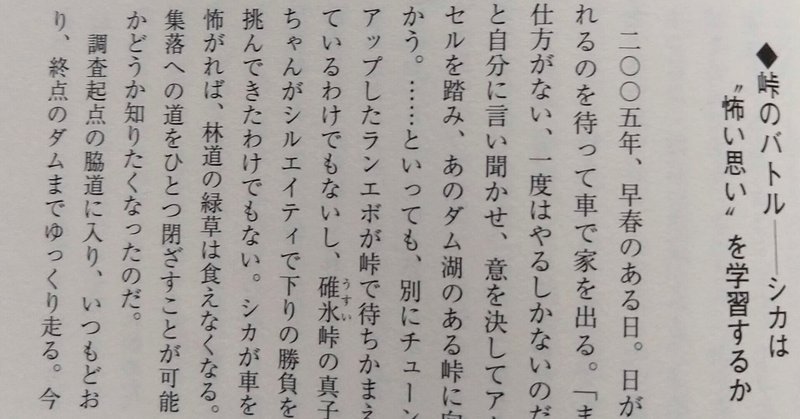 ◆峠のバトル――シカは
〝怖い思い〟を学習するか
二〇〇五年、早春のある日。日が
れるのを待って車で家を出る。「ま
仕方がない、一度はやるしかないのだ
と自分に言い聞かせ、意を決してア
セルを踏み、あのダム湖のある峠に向
かう。……といっても、別にチューン
アップしたランエボが峠で待ちかまえ
ているわけでもないし、碓氷峠の真子
うすい
ちゃんがシルエイティで下りの勝負を
挑んできたわけでもない。シカが車を
怖がれば、林道の緑草は食えなくなる。
集落への道をひとつ閉ざすことが可能
かどうか知りたくなったのだ。
調査起点の脇道に入り、いつもどお
り、終点のダムまでゆっくり走る。今